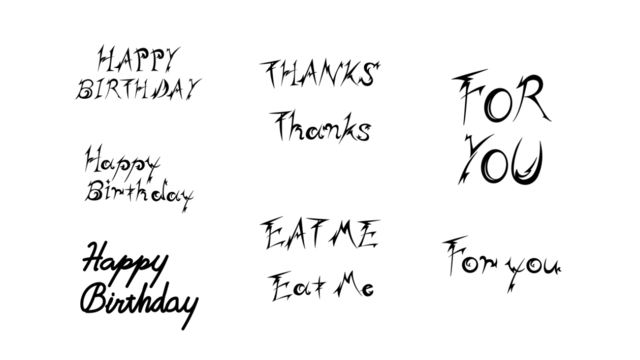 HAPPY
BIRTHDAY
Happy
Birthday
Happy
Birthday
THANKS
Thanks
EAT ME
Eat Me
FOR
YOU
For you